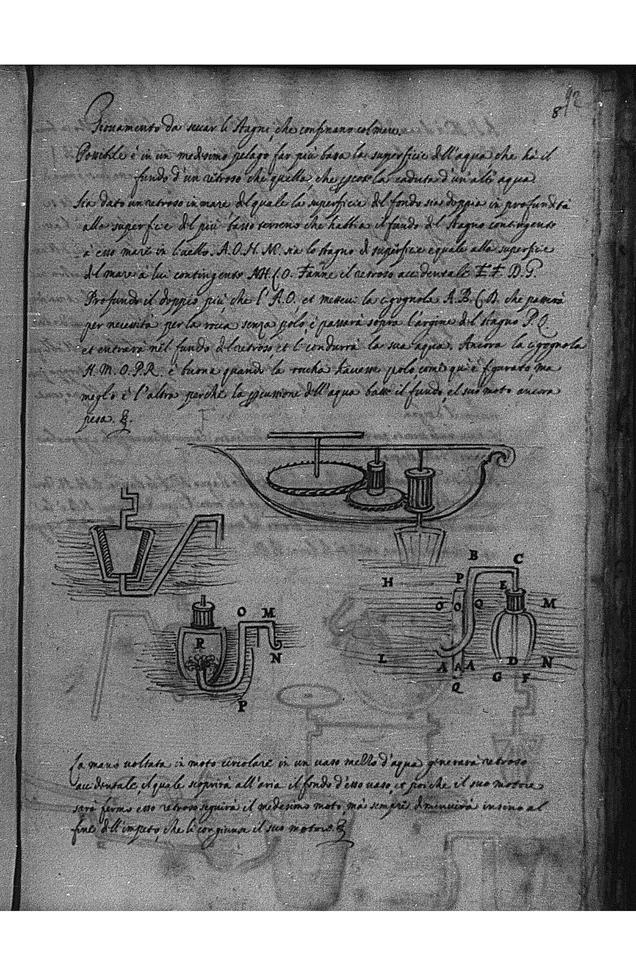 92
8
Giovamento da seccar li stagni, che confinano col mare
Posibile è in un medesimo pelago far più bassa la superficie dell'aqua che hà il
fundo d'un retroso che quella, che percote la caduta d'un alt' aqua
Sia dato un retroso in mare del quale la superficie del fondo sia doppia in profundità
alla superficie del più basso terreno che habbia il fundo del stagno contingente
à esso mare in livello. A.O.H.M. sia lo stagno di superficie equale alla superficie
del mare à lui contingente. Fanne il retroso accidentale E.F.D.G.
Profundo il doppio più, che l'A.O. et mettevi la cigognola A.B.C.D. che passerà
per necessità per la rocca senza polo, e passarà sopra l'argine del stagno P.Q
et entrarà nel fundo del retroso et li condurrà la sua aqua. Ancora la cigognola
A.M.O.P.R. è buona quando la roccha havesse polo come qui è figurato, ma
meglio è l'altra perche la percussione dell'aqua batte il fundo e'l suo moto ancora
pesa.
B C
H P E
O O Q M
O M
R
N
L A A A D N
G F
P Q
La mano voltata in moto circolare in un vaso mezzo d'aqua generarà retroso
accidentale, il quale scoprirà all'aria il fondo d'esso vaso, et poi che il suo motore
sarà fermo esso retroso seguirà il medesimo moto, mà sempre diminuirà insino al
fine dell'impeto, che li congiunse il suo motore.